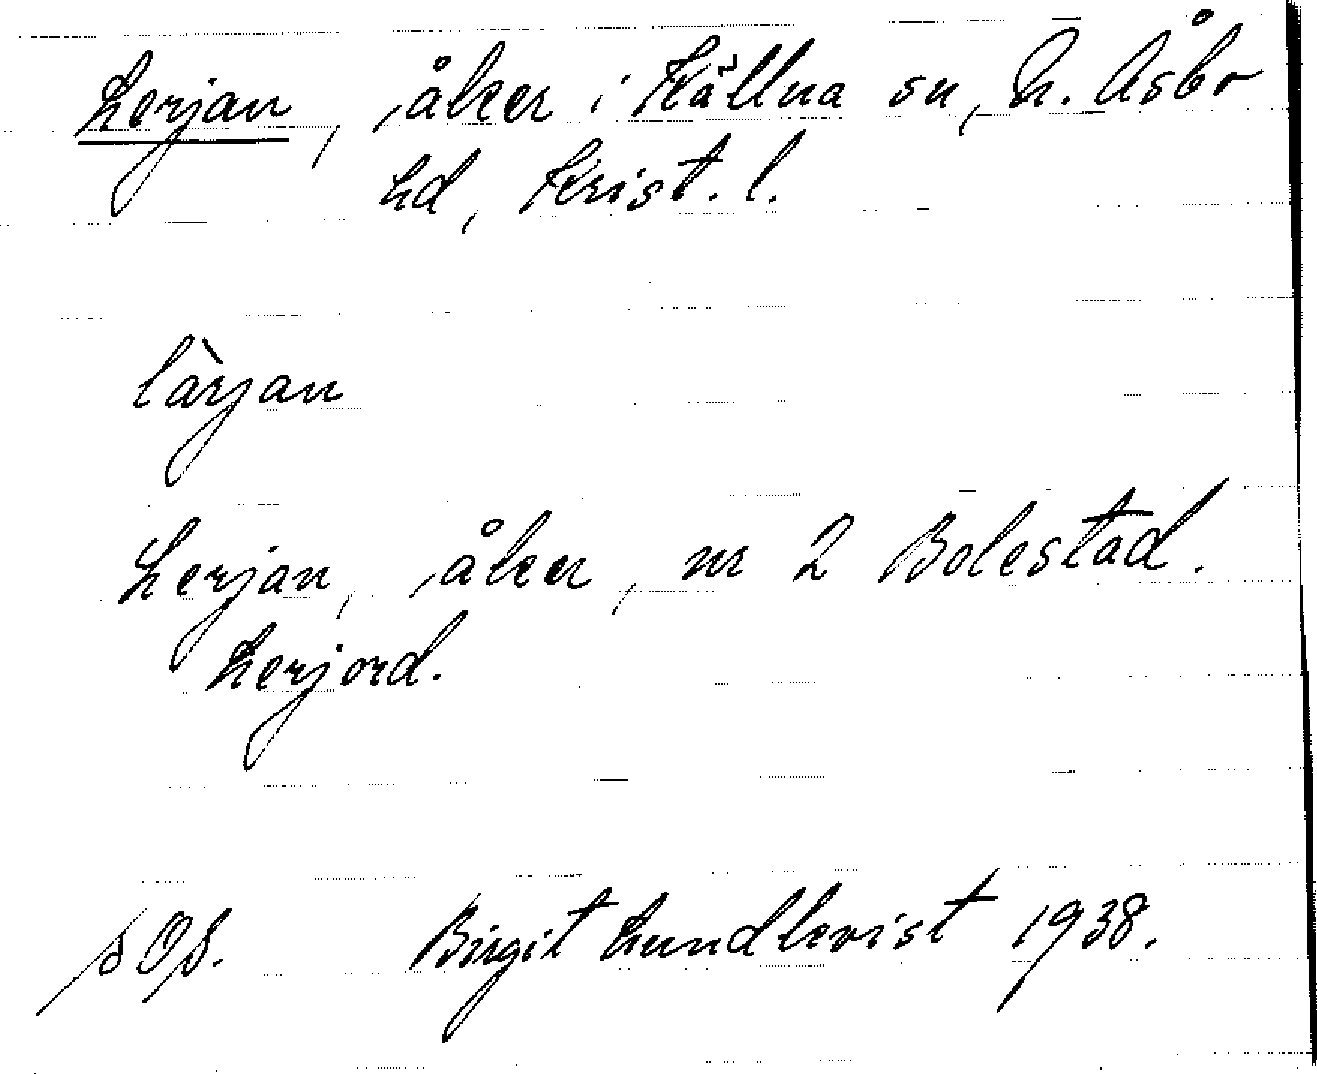 Lerjan, åker i Källna sn, N. Åsbo
hd, Krist. l.
làrjan
Lerjan, åker, nr 2 Bolestad.
Lerjord.
Birgit Lundkvist 1938.